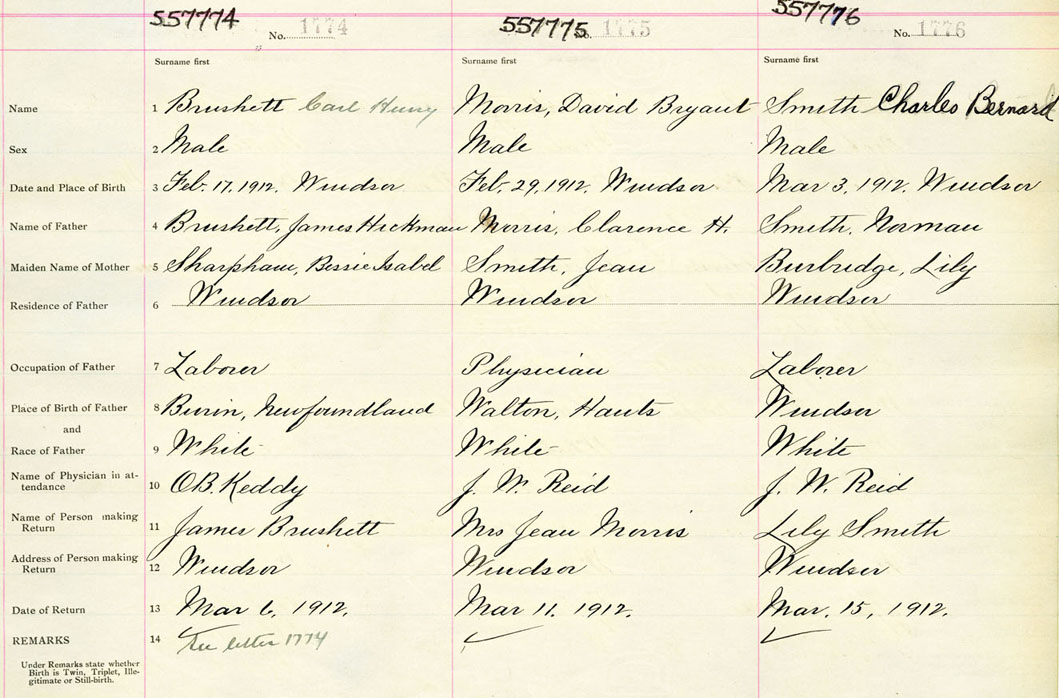 557774 No. 1774 557775 No. 1775 557776 No. 1776
Surname first Surname first Surname first
Name 1 Brushett Carl Henry Morris, David Bryant Smith Charles Bernard
Sex 2 Male Male Male
Date and Place of Birth 3 Feb. 17, 1912. Windsor Feb. 29, 1912. Windsor Mar 3, 1912. Windsor
Name of Father 4 Brushett, James Hickman Morris, Clarence H. Smith, Norman
Maiden Name of Mother 5 Sharpham, Bessie Isabel Smith, Jean Burbridge, Lily
Residence of Father 6 Windsor Windsor Windsor
Occupation of Father 7 Laborer Physician Laborer
Place of Birth of Father 8 Burin, Newfoundland Walton, Hants Windsor
and
Race of Father 9 White White White
Name of Physician in at-
tendance 10 O.B. Keddy J. W. Reid J. W. Reid
Name of Person making
Return 11 James Brushett Mrs Jean Morris Lily Smith
Address of Person making
Return 12 Windsor Windsor Windsor
Date of Return 13 Mar 6, 1912. Mar 11. 1912. Mar. 15, 1912.
REMARKS 14 See letter 1774
Under Remarks state whether
Birth is Twin, Triplet, Ille-
gitimate or Still-birth.